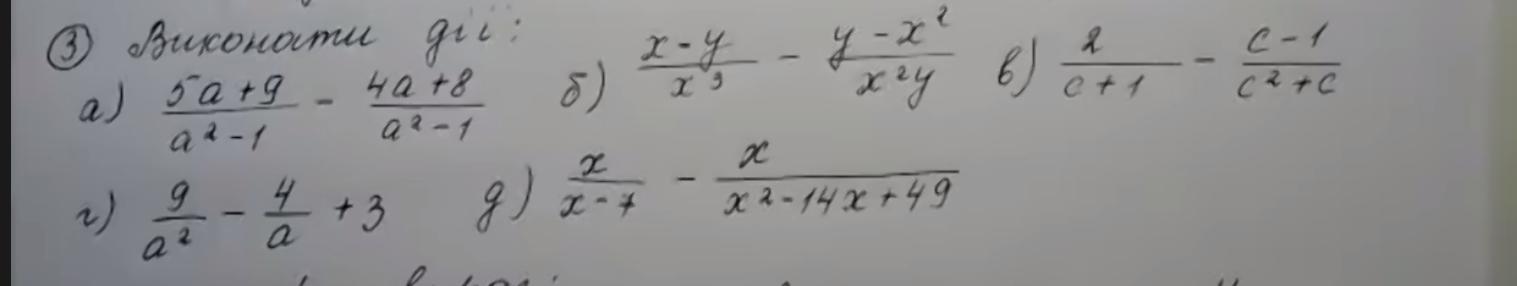 ③ Виконати дії:
а) \frac{5a+9}{a^2-1} - \frac{4a+8}{a^2-1} б) \frac{x-y}{x^3} - \frac{y-x^2}{x^2y} в) \frac{2}{c+1} - \frac{c-1}{c^2+c}
г) \frac{9}{a^2} - \frac{4}{a} + 3 д) \frac{x}{x-7} - \frac{x}{x^2-14x+49}